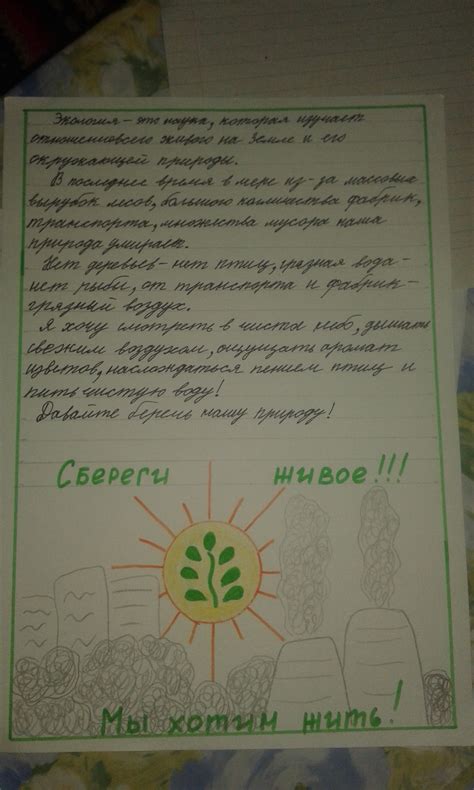 Экология – это наука, которая изучает
отношения всего живого на Земле и его
окружающей природы.
В последнее время в мире из-за массовых
вырубок лесов, большого количества фабрик,
транспорта, множества мусора наша
природа умирает.
Нет деревьев – нет птиц, грязная вода –
нет рыбы, от транспорта и фабрик –
грязный воздух.
Я хочу смотреть в чистое небо, дышать
свежим воздухом, ощущать аромат
цветов, наслаждаться пением птиц и
пить чистую воду!
Давайте беречь нашу природу!
Сбереги живое!!!
Мы хотим жить!